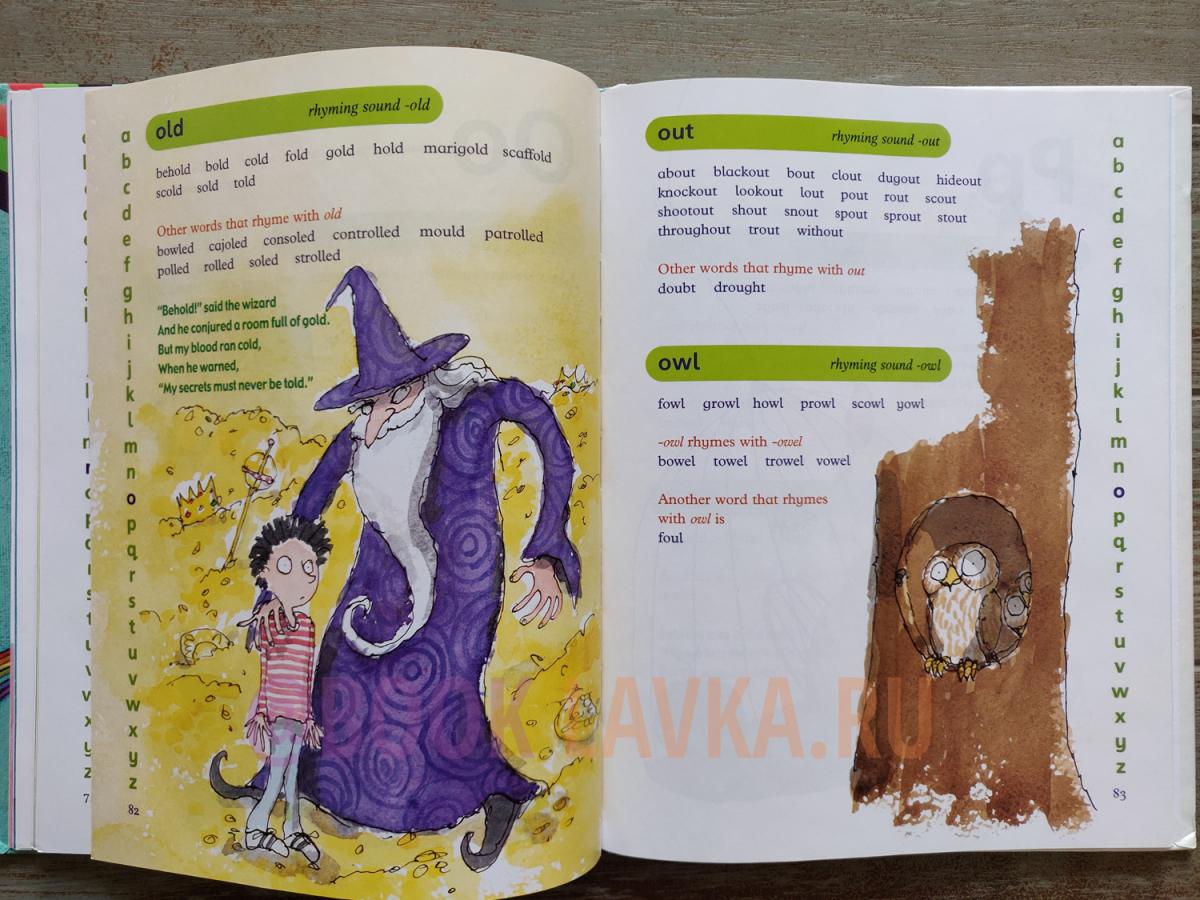 old rhyming sound -old
behold bold cold fold gold hold marigold scaffold
scold sold told
Other words that rhyme with old
bowled cajoled consoled controlled mould patrolled
polled rolled soled strolled
“Behold!” said the wizard
And he conjured a room full of gold.
But my blood ran cold,
When he warned,
“My secrets must never be told.”
a
b
c
d
e
f
g
h
i
j
k
l
m
n
o
p
q
r
s
t
u
v
w
x
y
z
82
out rhyming sound -out
about blackout bout clout dugout hideout
knockout lookout lout pout rout scout
shootout shout snout spout sprout stout
throughout trout without
Other words that rhyme with out
doubt drought
owl rhyming sound -owl
fowl growl howl prowl scowl yowl
-owl rhymes with -owel
bowel towel trowel vowel
Another word that rhymes
with owl is
foul
a
b
c
d
e
f
g
h
i
j
k
l
m
n
o
p
q
r
s
t
u
v
w
x
y
z
83